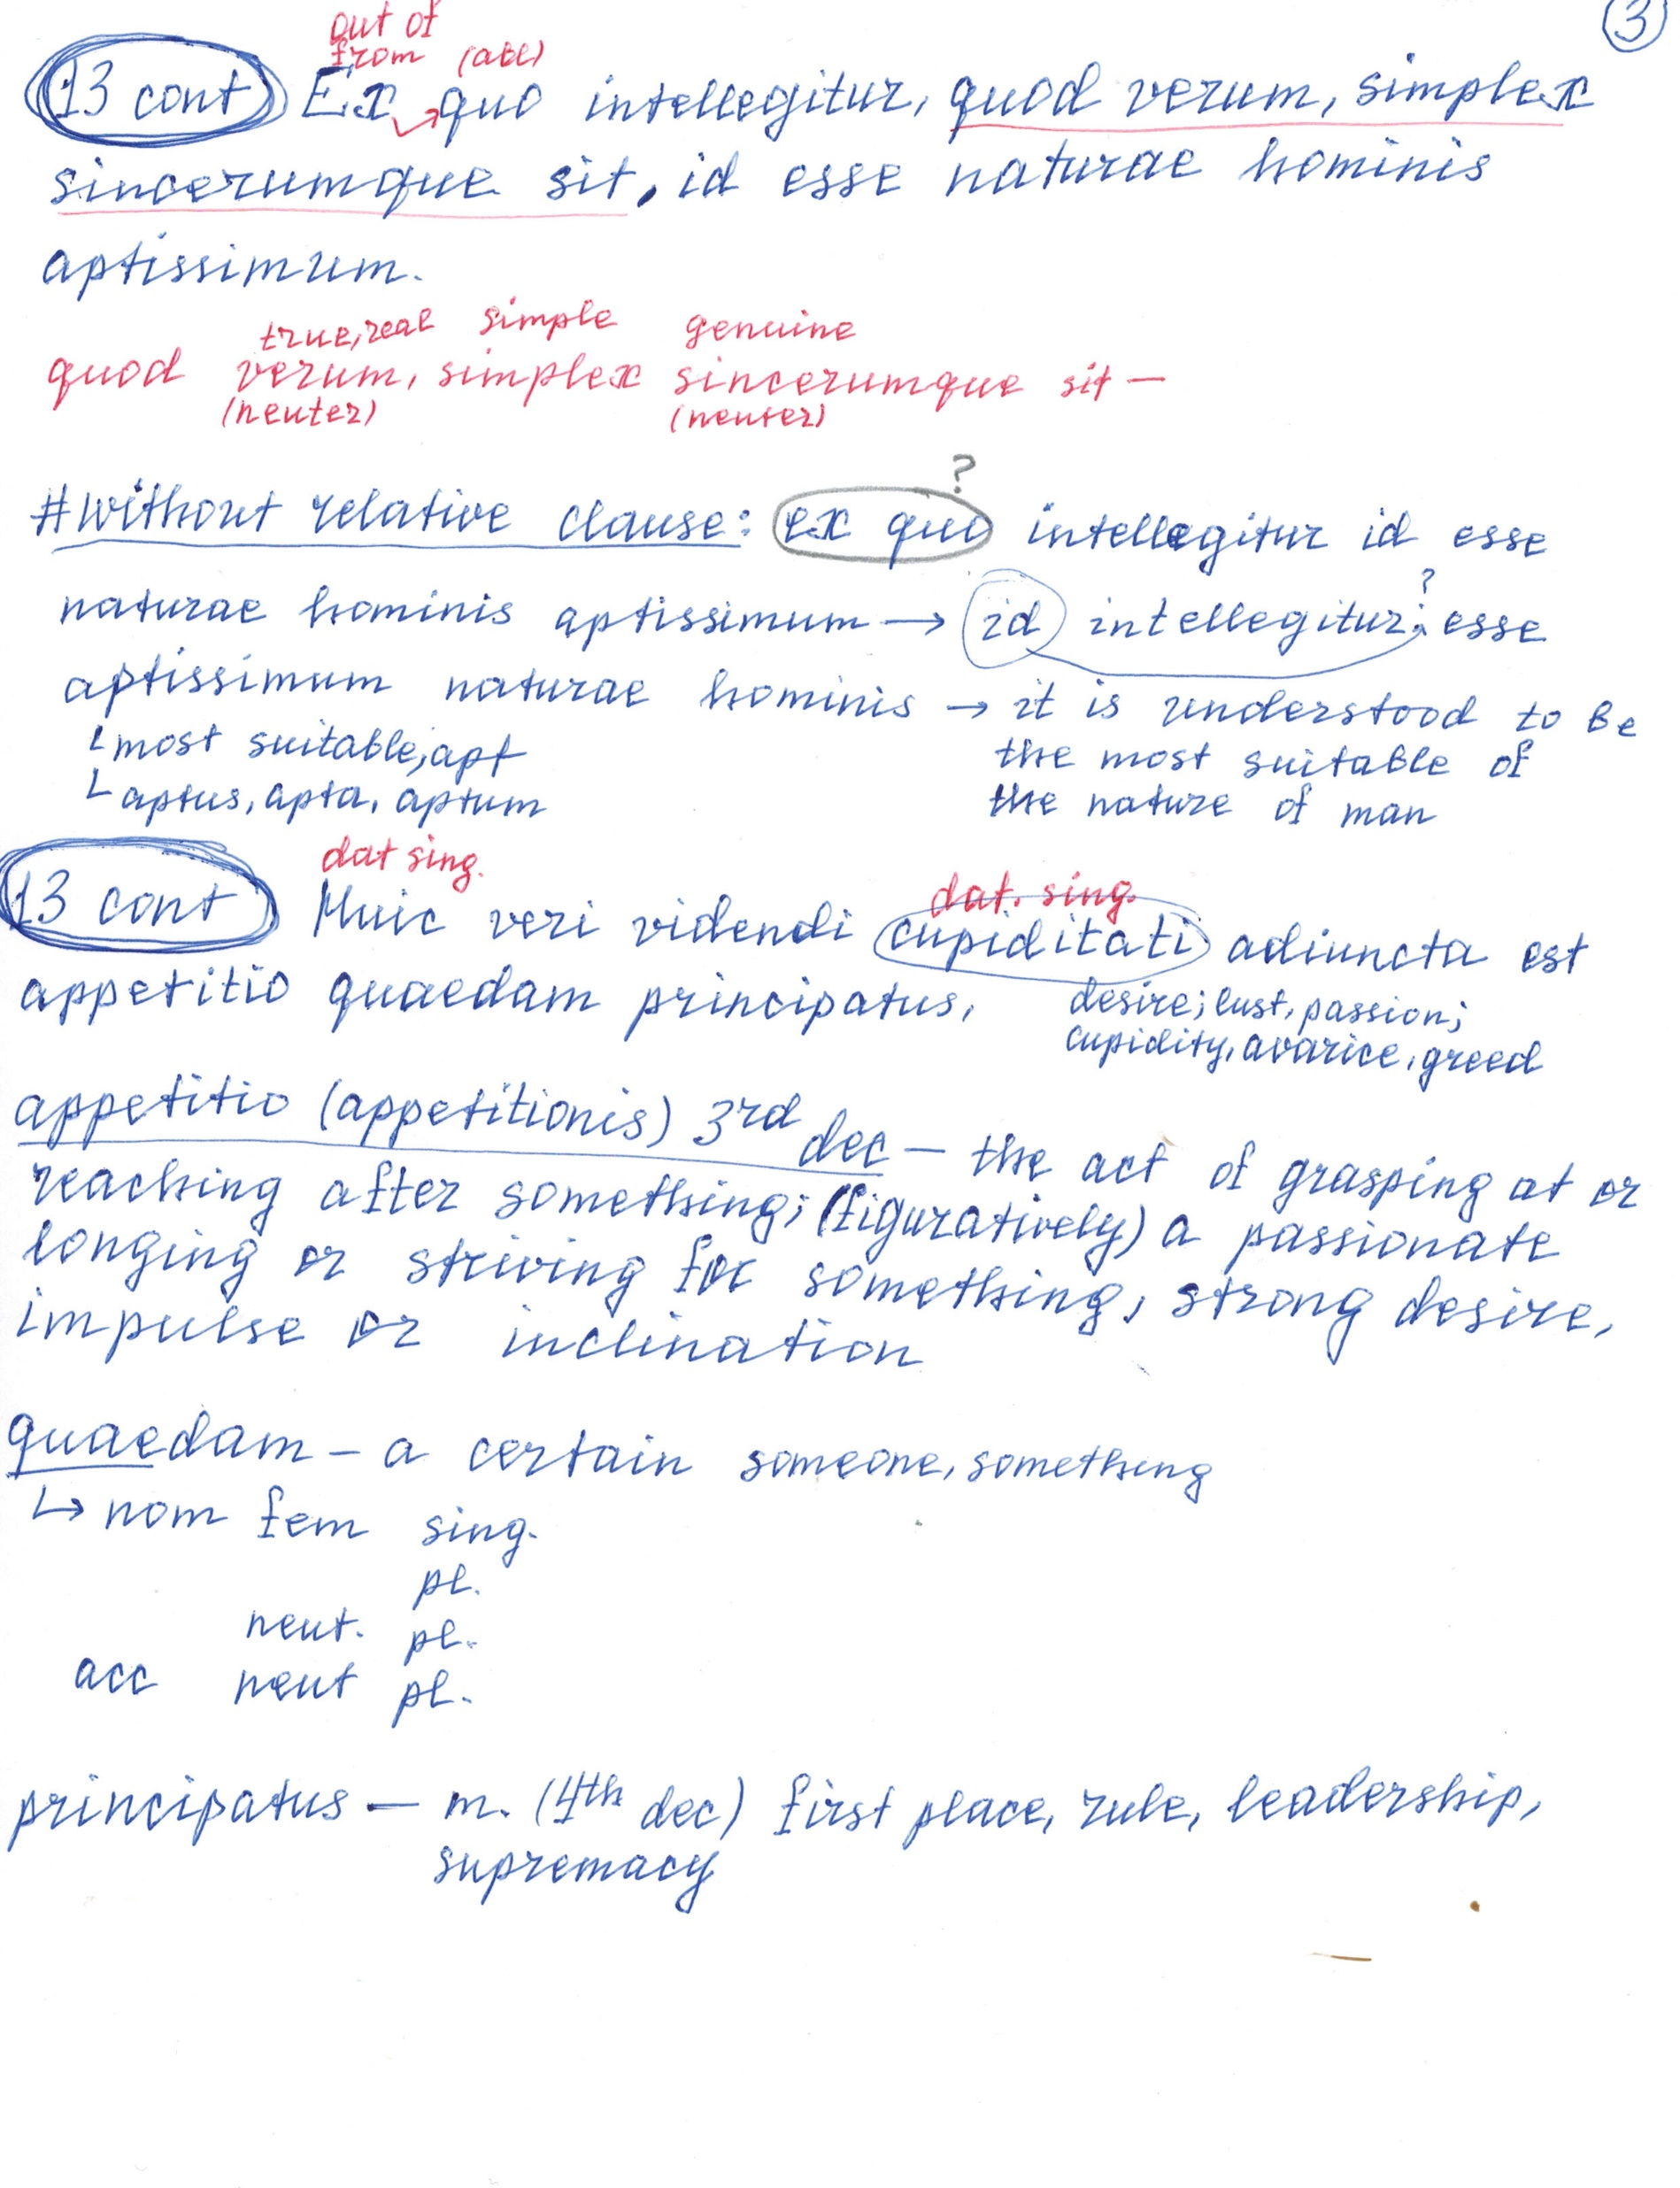 3
out of
from (abl)
13 cont Ex quo intellegitur, quod verum, simplex
sincerumque sit, id esse naturae hominis
aptissimum.
true, real simple genuine
quod verum, simplex sincerumque sit —
(neuter) (neuter)
?
#without relative clause: ex quo intellegitur id esse
?
naturae hominis aptissimum → id intellegitur esse
aptissimum naturae hominis → it is understood to be
most suitable, apt the most suitable of
aptus, apta, aptum the nature of man
dat sing. dat. sing.
13 cont Huic veri videndi cupiditati adiuncta est
appetitio quaedam principatus, desire; lust, passion;
cupidity, avarice, greed
appetitio (appetitionis) 3rd dec — the act of grasping at or
reaching after something; (figuratively) a passionate
longing or striving for something, strong desire,
impulse or inclination
quaedam — a certain someone, something
↳ nom fem sing.
pl.
neut. pl.
acc neut pl.
principatus — m. (4th dec) first place, rule, leadership,
supremacy